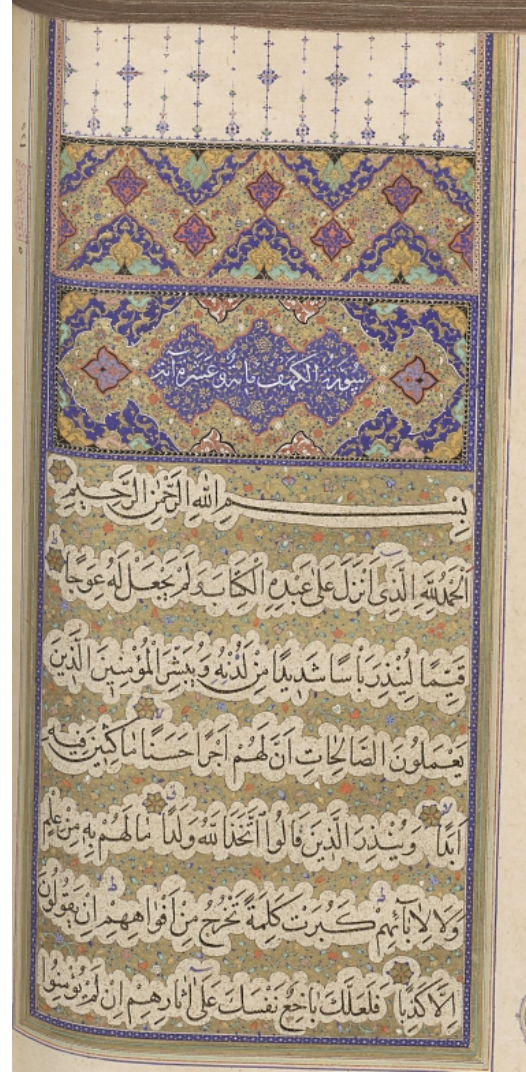 سورة الكهف مائة و عشرة آية
بِسْمِ اللهِ الرَّحْمٰنِ الرَّحِيمِ
اَلْحَمْدُ لِلّٰهِ الَّذِى اَنْزَلَ عَلٰى عَبْدِهِ الْكِتَابَ وَلَمْ يَجْعَلْ لَهُ عِوَجًا
قَيِّمًا لِيُنْذِرَ بَأْسًا شَدِيدًا مِنْ لَدُنْهُ وَيُبَشِّرَ الْمُؤْمِنِينَ الَّذِينَ
يَعْمَلُونَ الصَّالِحَاتِ اَنَّ لَهُمْ اَجْرًا حَسَنًا مَاكِثِينَ فِيهِ
اَبَدًا وَيُنْذِرَ الَّذِينَ قَالُوا اتَّخَذَ اللهُ وَلَدًا مَا لَهُمْ بِهِ مِنْ عِلْمٍ
وَلَا لِاٰبَائِهِمْ كَبُرَتْ كَلِمَةً تَخْرُجُ مِنْ اَفْوَاهِهِمْ اِنْ يَقُولُونَ
اِلَّا كَذِبًا فَلَعَلَّكَ بَاخِعٌ نَفْسَكَ عَلٰى اٰثَارِهِمْ اِنْ لَمْ يُؤْمِنُوا